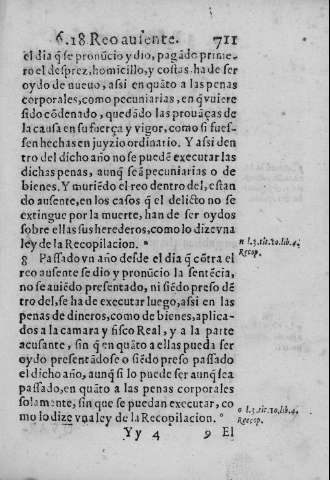 6. 18 Reo ausente. 711
el dia q̃ se pronũcio y dio, pagãdo prime-
ro el desprez, homicillo, y costas ha de ser
oydo de nueuo, assi en quãto a las penas
corporales, como pecuniarias, en q̃ vuiere
sido cõdenado, quedãdo las prouãças de
la causa en su fuerça y vigor, como si fues-
sen hechas en juyzio ordinario. Y assi den
tro del dicho año no se puedẽ executar las
dichas penas, aunq̃ seã pecuniarias o de
bienes. Y muriẽdo el reo dentro del, estan
do ausente, en los casos q̃ el delicto no se
extingue por la muerte, han de ser oydos
sobre ellas sus herederos, como lo dize vna
ley de la Recopilacion. ⁿ
n l.3. tit.10. lib.4.
Recop.
8 Passado vn año desde el dia q̃ cõtra el
reo ausente se dio y pronũcio la sentẽcia,
no se auiẽdo presentado, ni siẽdo preso dẽ
tro del, se ha de executar luego, assi en las
penas de dineros, como de bienes, aplica-
dos a la camara y fisco Real, y a la parte
acusante, sin q̃ en quãto a ellas pueda ser
oydo presentãdose o siẽdo preso passado
el dicho año, aunq̃ si lo puede ser aunq̃ sea
passado, en quãto a las penas corporales
solamente, sin que se puedan executar, co
mo lo dize vna ley de la Recopilacion. ᵒ
o l.3. tit.10. lib.4.
Recop.
Yy 4 9 El